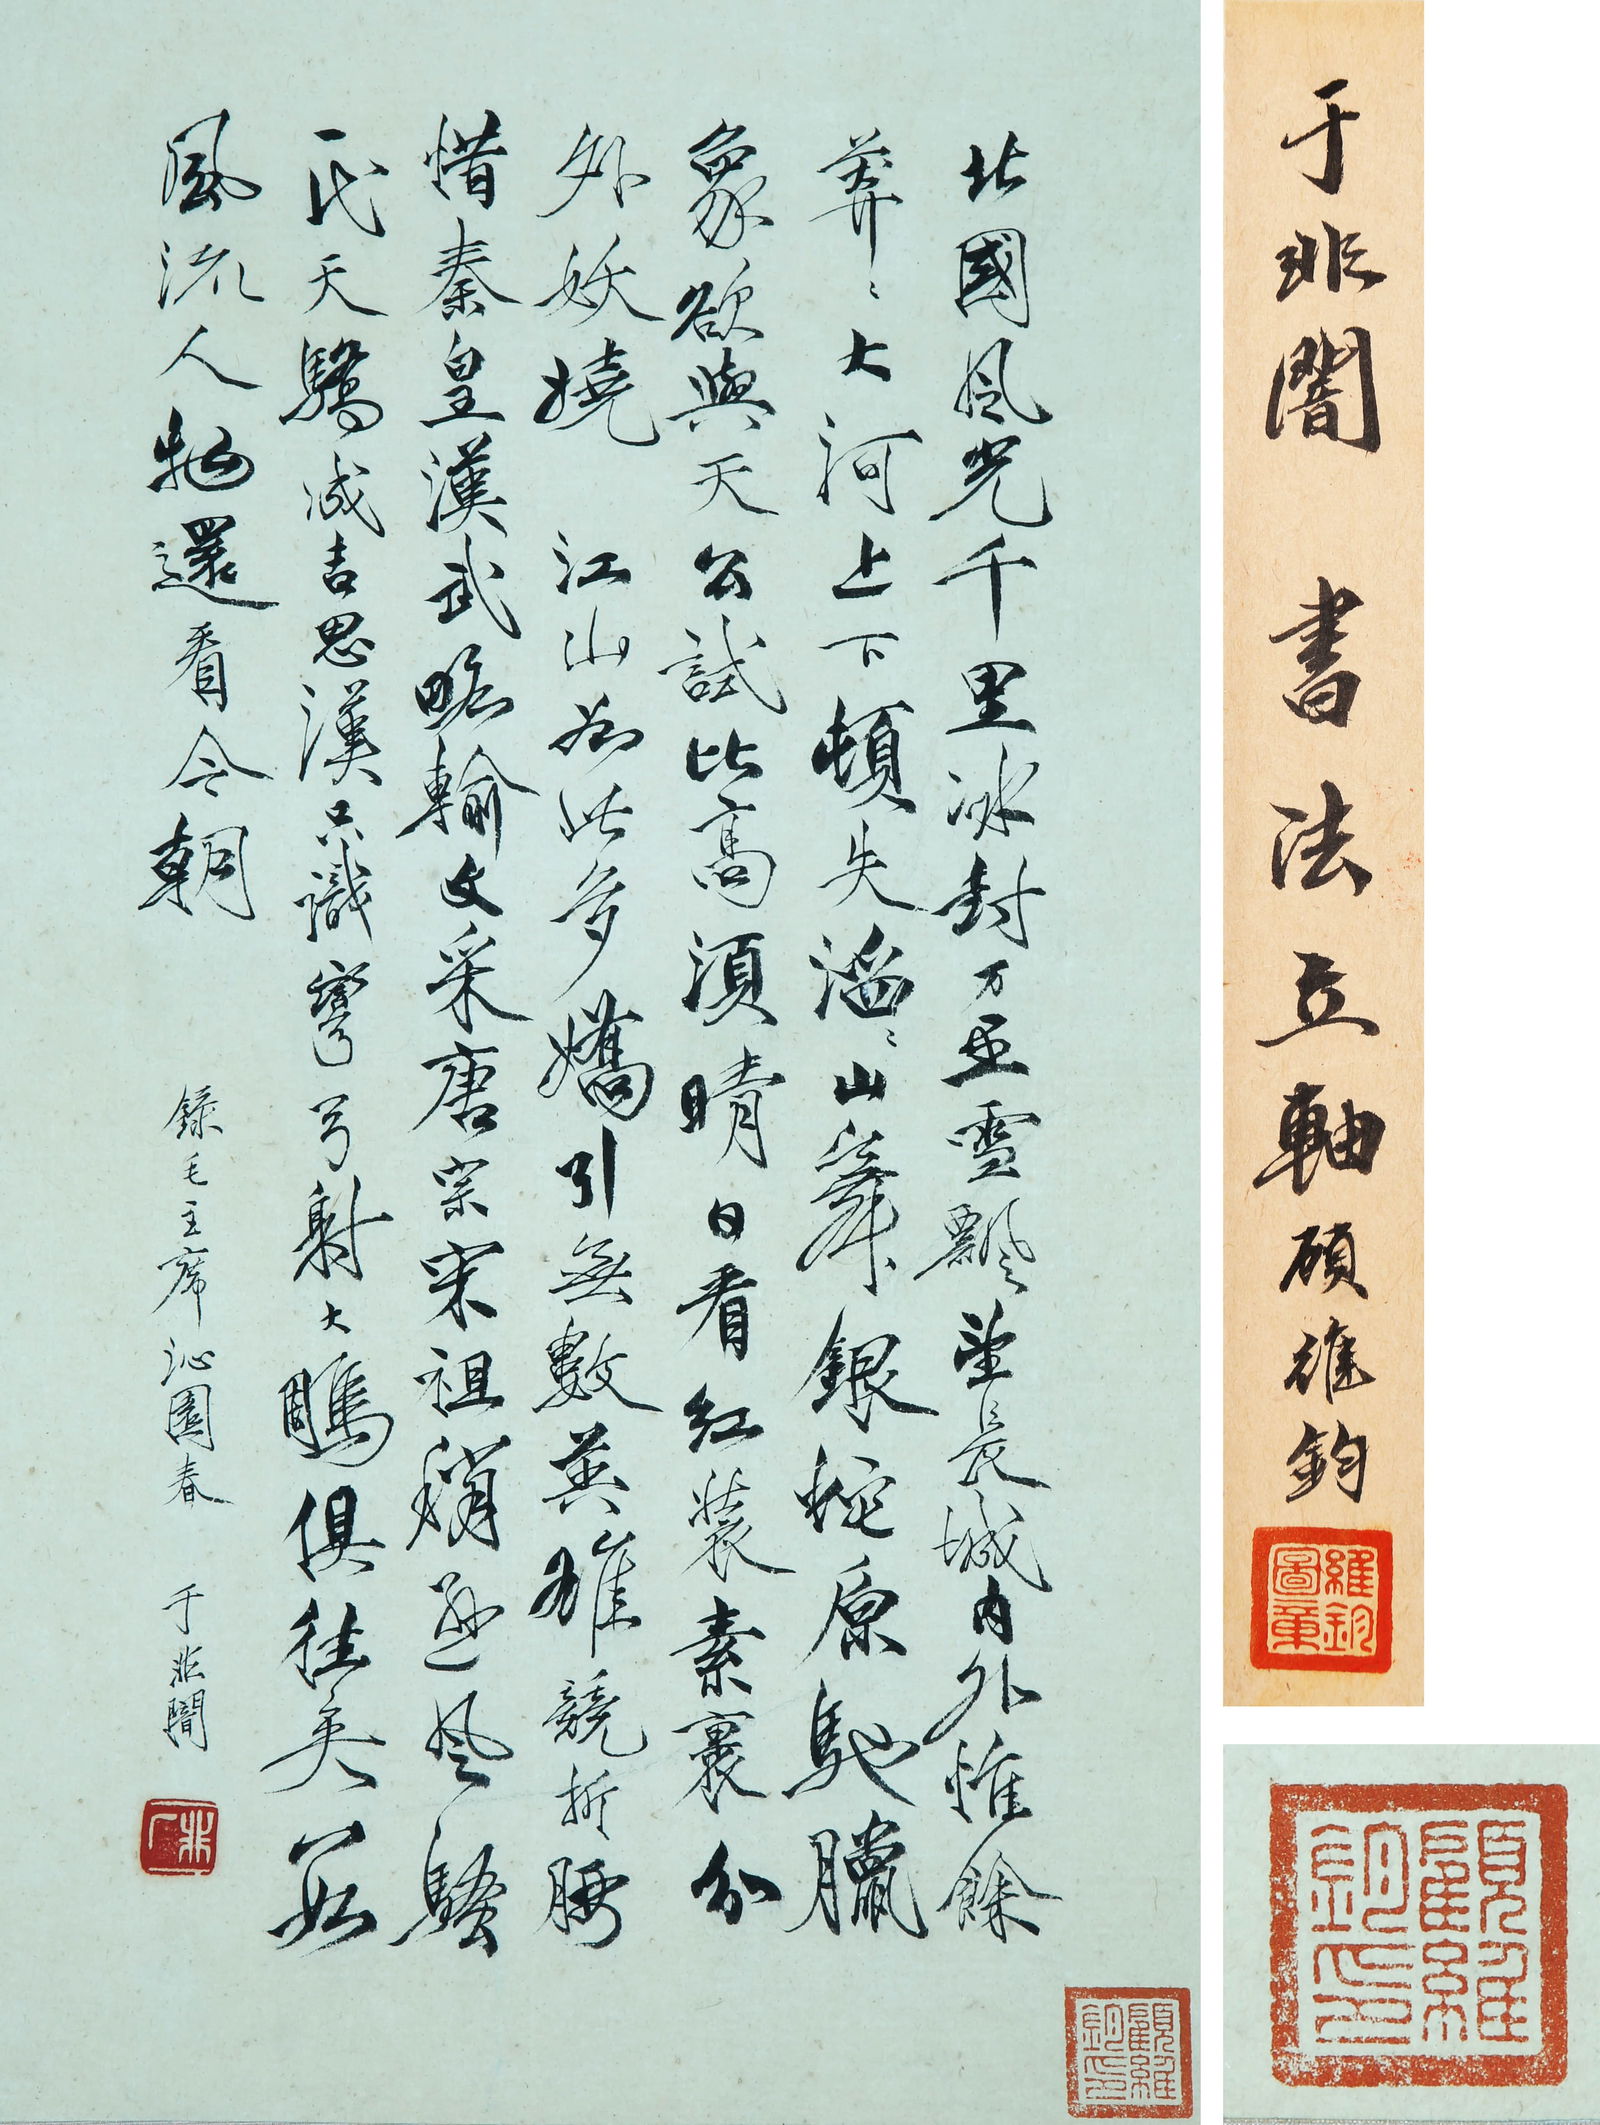 北國風光千里冰封万里雪飄望長城內外惟餘
莽〻大河上下頓失滔〻山舞銀蛇原馳臘
象欲與天公試比高須晴日看紅裝素裹分
外妖嬈 江山如此多嬌引無數英雄競折腰
惜秦皇漢武略輸文采唐宗宋祖稍遜風騷
一代天驕成吉思漢只識彎弓射大鵰俱往矣數
風流人物還看今朝
錄毛主席沁園春 于非闇
非厂
顧維鈞印
于非闇 書法立軸 顧維鈞
維鈞圖章
顧維鈞印